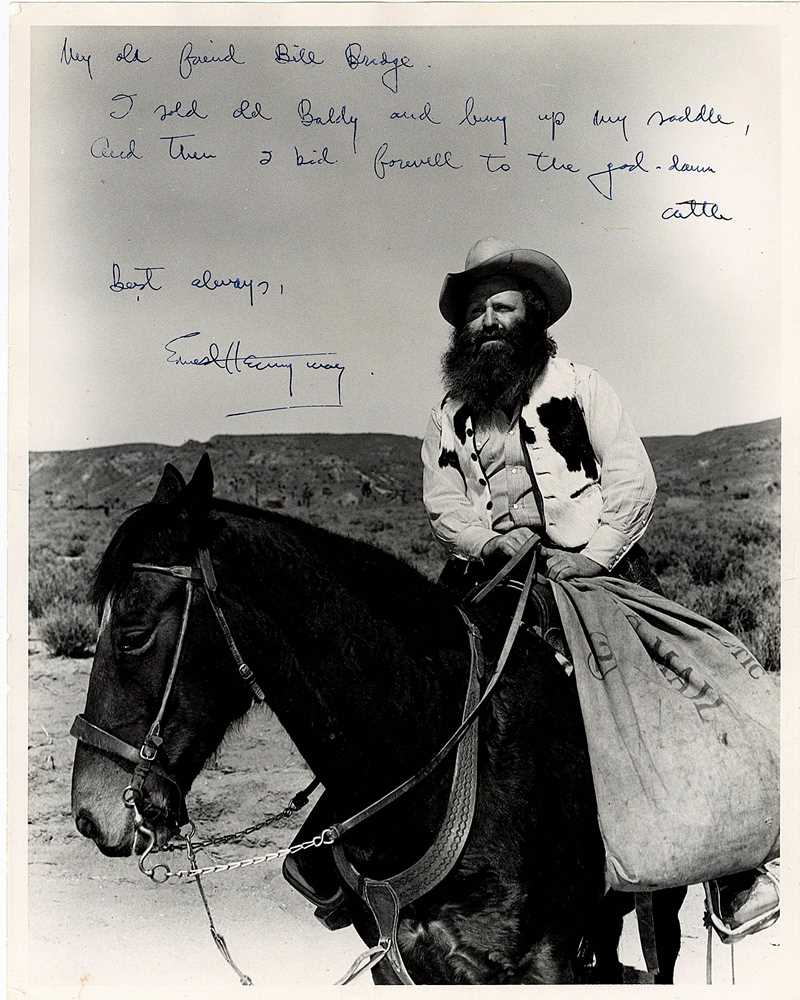 My old friend Bill Bridge.
I sold old Baldy and hung up my saddle,
And then I bid farewell to the god-damn
cattle
best always,
Ernest Hemingway
MAIL
TIC